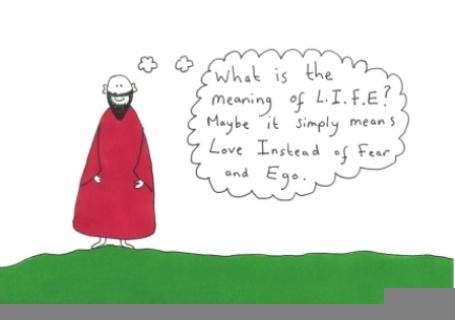 What is the
meaning of L.I.F.E?
Maybe it simply means
Love Instead of Fear
and Ego.